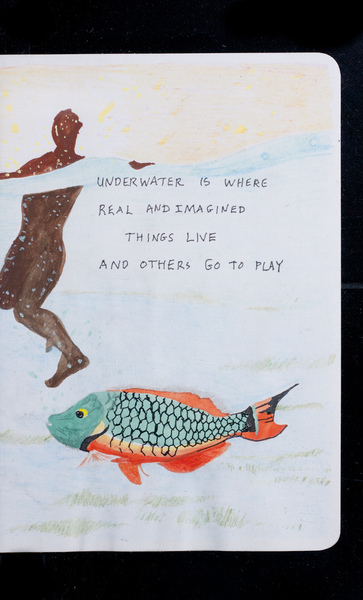 UNDERWATER IS WHERE
REAL AND IMAGINED
THINGS LIVE
AND OTHERS GO TO PLAY